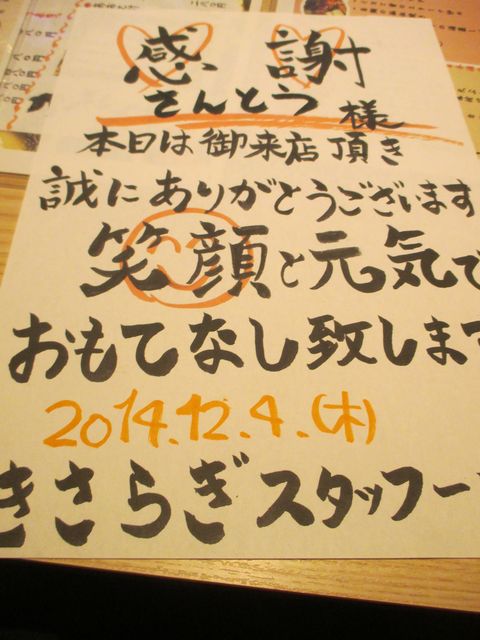 感謝
さんとう様
本日は御来店頂き
誠にありがとうございます
笑顔と元気で
おもてなし致します
2014.12.4.(木)
きさらぎスタッフ一